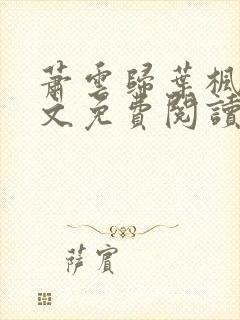 蕭雲歸葉楓
文免費閱讀
薩賓